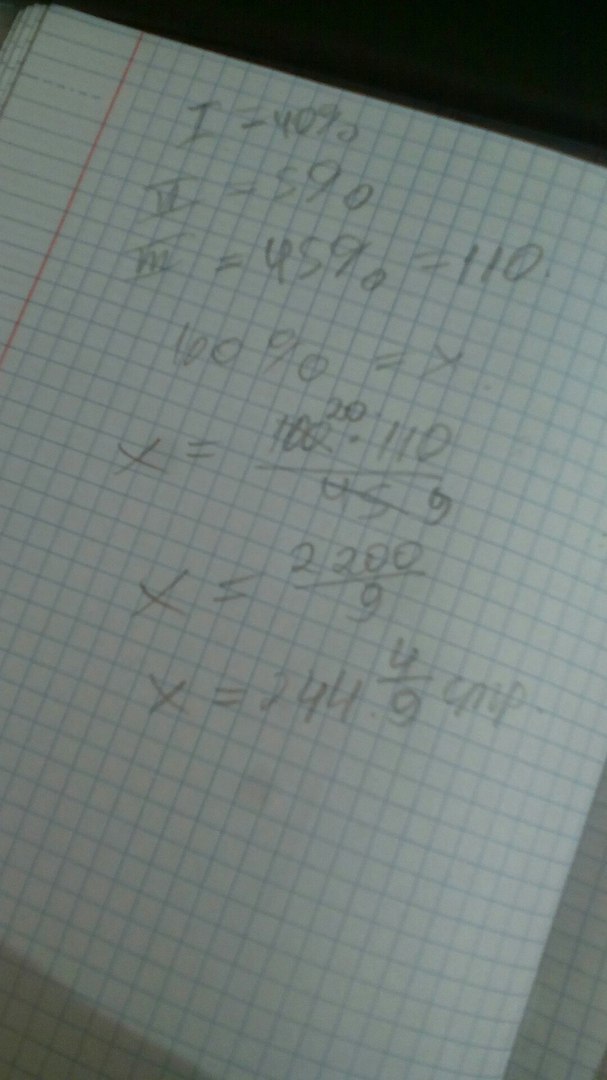 I = 40%
II = 5%
III = 45% = 110.
100% = x
x = 100 20 · 110 / 45 9
x = 2200 / 9
x = 244 4/9 стр.